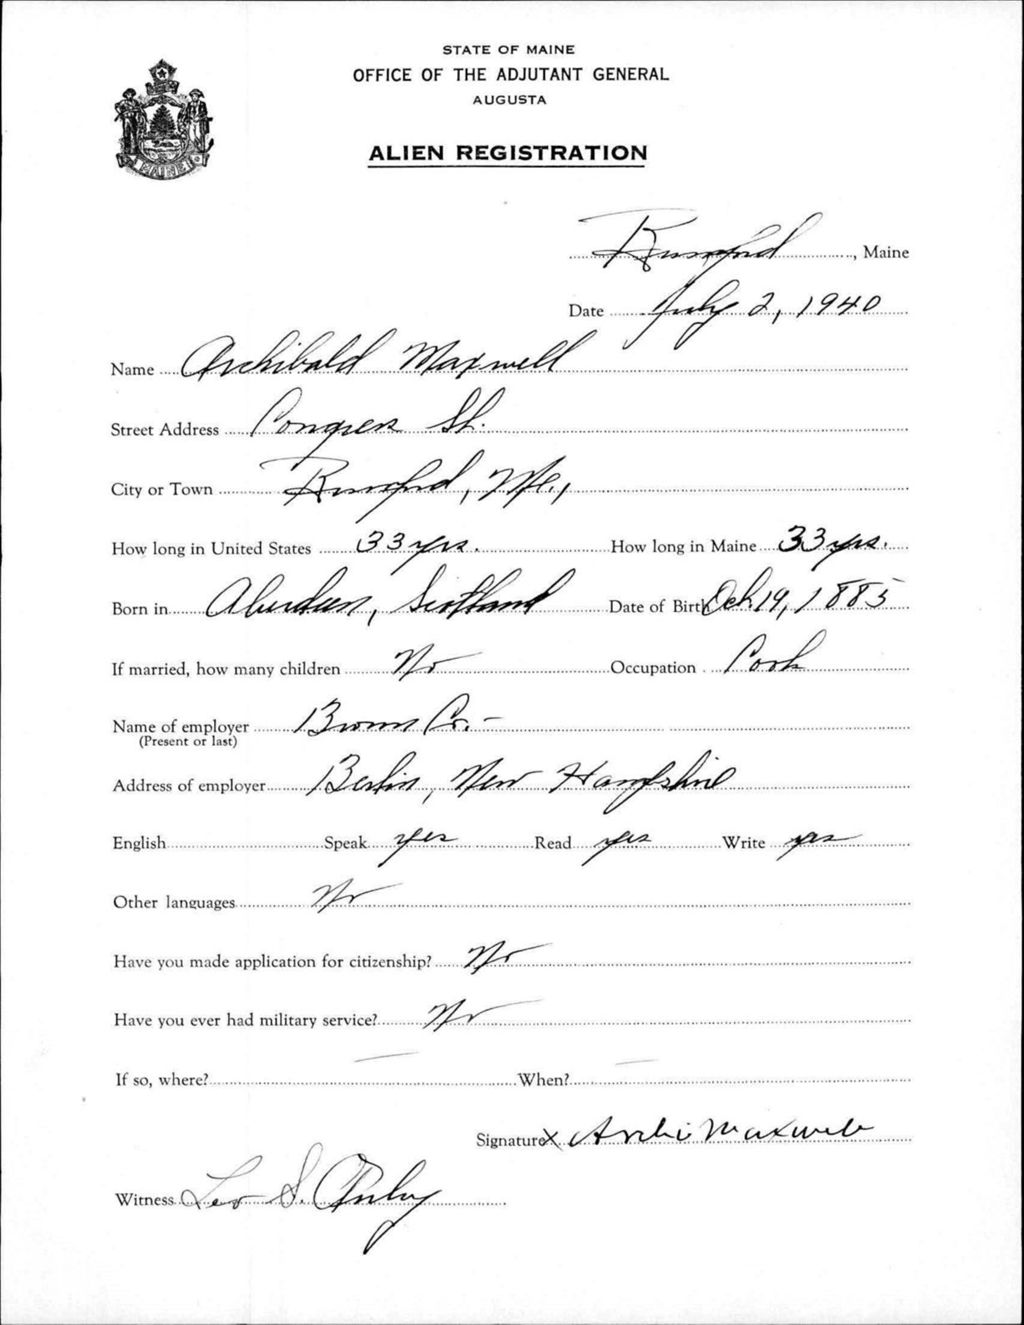 STATE OF MAINE
OFFICE OF THE ADJUTANT GENERAL
AUGUSTA
ALIEN REGISTRATION
MAINE
Rumford, Maine
Date July 2, 1940
Name Archibald Maxwell
Street Address Congress St.
City or Town Rumford, Me.,
How long in United States 33 yrs. How long in Maine 33 yrs.
Born in Aberdeen, Scotland Date of Birth Oct. 19, 1885
If married, how many children No Occupation Cook
Name of employer Brown Co. -
(Present or last)
Address of employer Berlin, New Hampshire
English Speak yes Read yes Write yes
Other languages No
Have you made application for citizenship? No
Have you ever had military service? No
If so, where? — When? —
Signature X Archi Maxwell
Witness Leo S.